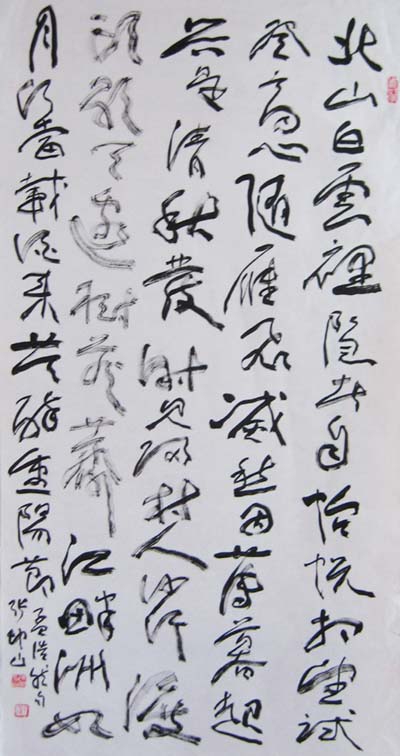 北山白雲裡隐者自怡悦相望试
登高心随雁飛滅愁因薄暮起
興是清秋發時見歸村人沙行渡
頭歇天邊樹若薺江畔洲如
月何當載酒来共醉重陽節
孟浩然句
张坤山